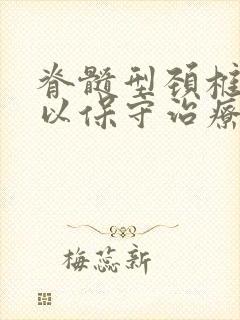 脊髓型颈椎
以保守治疗
梅蕊新